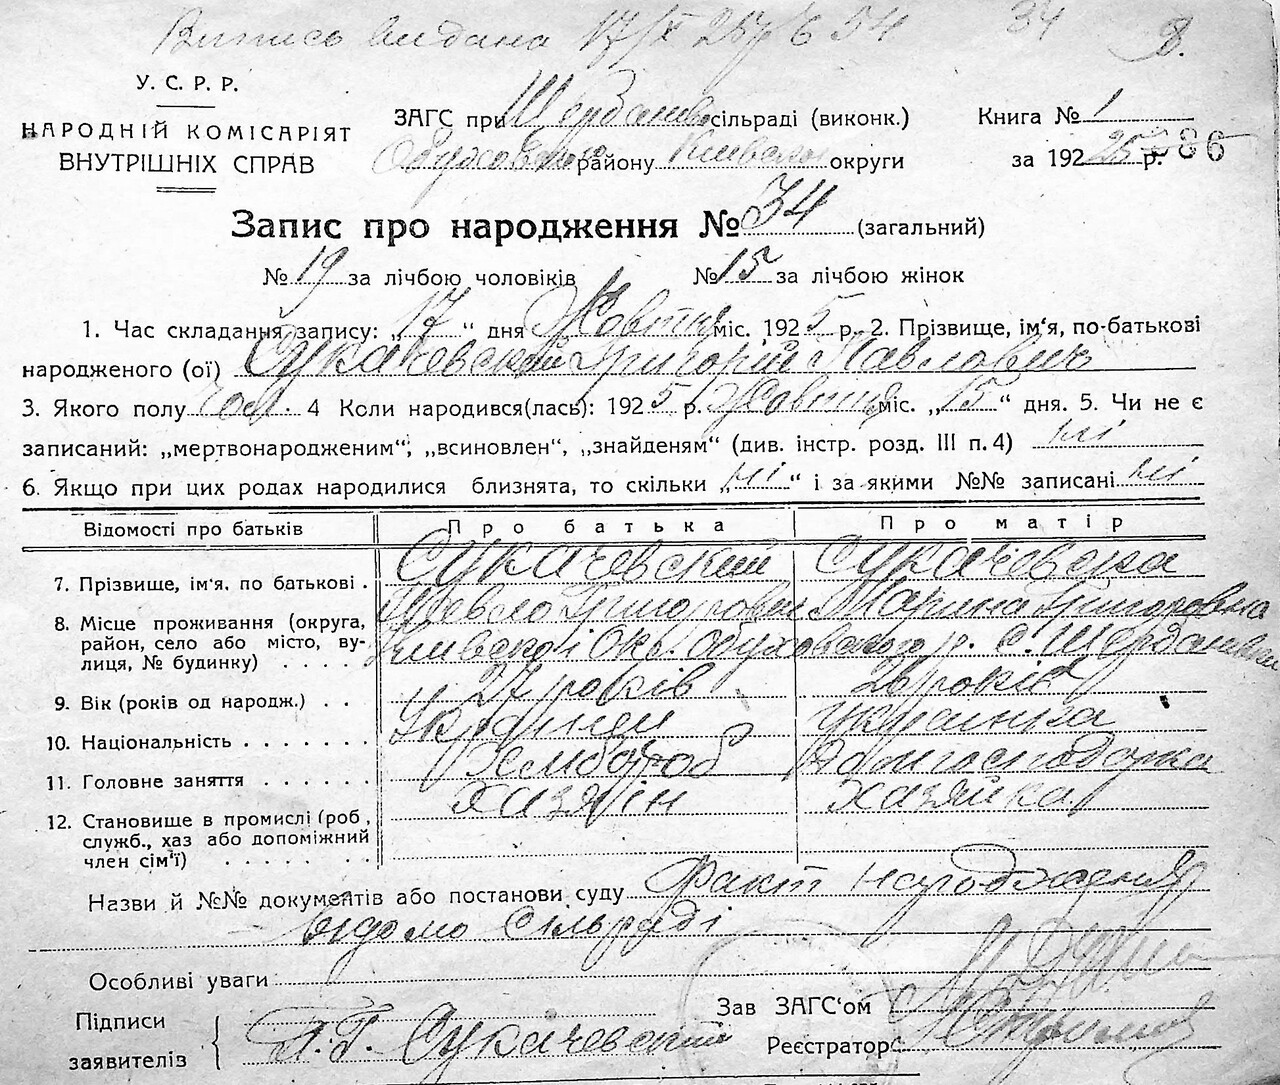 Випись видана 17/XI 257/6 54 34
У. С. Р. Р.
НАРОДНІЙ КОМІСАРІЯТ
ВНУТРІШНІХ СПРАВ
ЗАГС при Щербанів сільраді (виконк.)
Обухівського району Київської округи
Книга № 1
за 1925 р. 386
Запис про народження № 34 (загальний)
№ 19 за лічбою чоловіків № 15 за лічбою жінок
1. Час складання запису: „17“ дня Жовтня міс. 1925 р. 2. Прізвище, ім'я, по-батькові
народженого (ої) Сукачевский Григорій Павлович
3. Якого полу чол. 4 Коли народився(лась): 1925 р. Жовтня міс. „15“ дня. 5. Чи не є
записаний: „мертвонародженим“, „всиновлен“, „знайденям“ (див. інстр. розд. III п. 4) ні
6. Якщо при цих родах народилися близнята, то скільки „ні“ і за якими №№ записані ні
Відомості про батьків Про батька Про матір
7. Прізвище, ім'я, по батькові . Сукачевский Сукачевска
Павло Григорович Марина Григоровна
8. Місце проживання (округа,
район, село або місто, ву-
лиця, № будинку) . . . . Київської Окр. Обуховського р. с.
9. Вік (років од народж.) . . 27 років 26 років
10. Національність . . . . . . . Українец українка
11. Головне заняття . . . . . . Хлібороб Домогосподарка
12. Становище в промислі (роб, Хазяїн хазяйка
служб., хаз або допоміжний
член сім'ї) . . . . . . .
Назви й №№ документів або постанови суду Факт народження
відомо Сільраді
Особливі уваги
Підписи
заявителів П. Г. Сукачевский
Зав ЗАГС'ом
Реєстратор